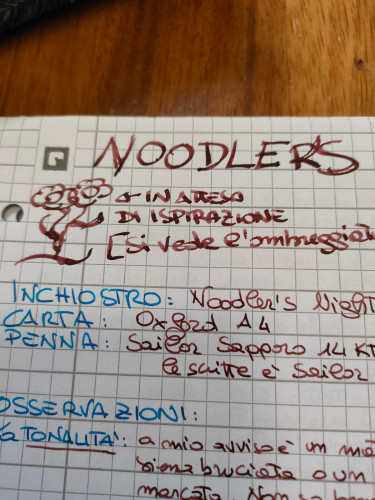 NOODLERS
← IN ATTESA
DI ISPIRAZIONE
[Si vede l'ombreggiat
INCHIOSTRO: Noodler's Night
CARTA: Oxford A4
PENNA: Sailor Sapporo 14 KT
le scritte è Sailor
OSSERVAZIONI:
TONALITÀ: a mio avviso è un ma
siena bruciata o un
marcata. Non